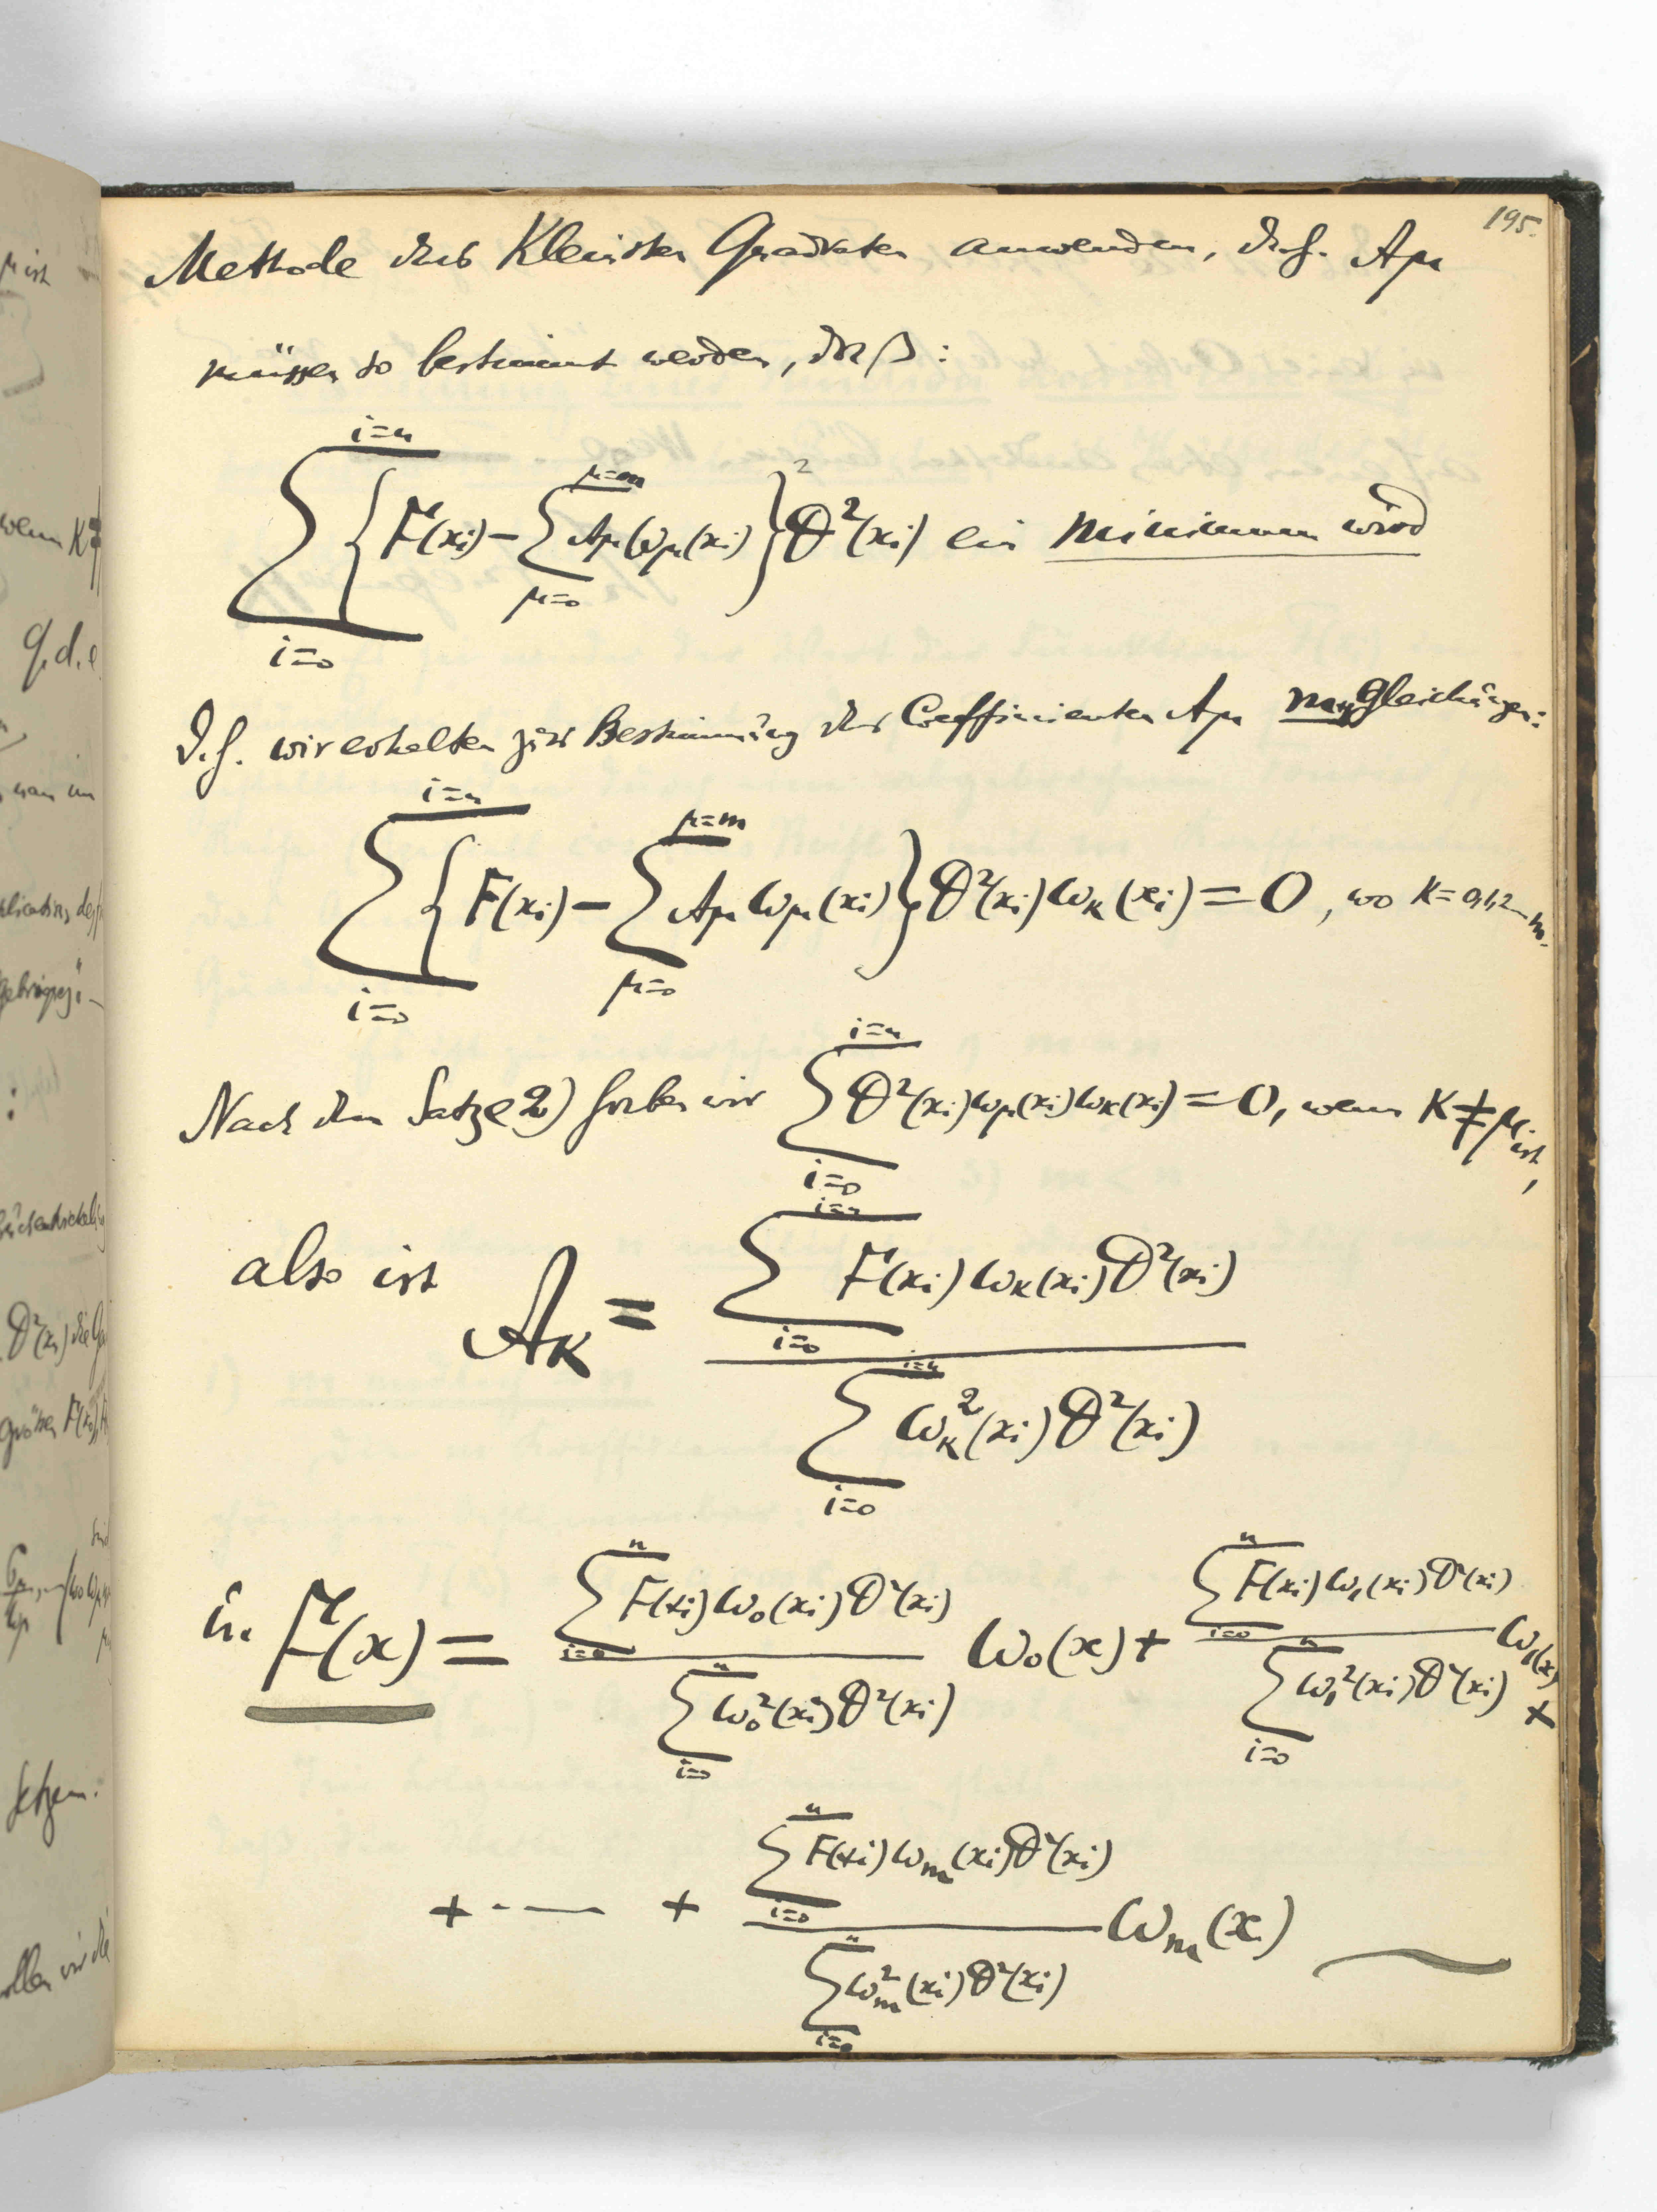 195.
Methode der Kleinsten Quadraten anwenden, d.h. Aμ
müssen so bestimmt werden, daß:
\sum_{i=0}^{i=n} { F(xi) − \sum_{μ=0}^{μ=m} Aμ ωμ(xi) }² θ²(xi) ein minimum wird
D.h. wir erhalten zur Bestimmung der Coefficienten Aμ m+1 Gleichungen:
\sum_{i=0}^{i=n} { F(xi) − \sum_{μ=0}^{μ=m} Aμ ωμ(xi) } θ²(xi) ωκ(xi) = 0, wo κ = 0,1,2...m.
Nach dem Satze 2) haben wir \sum_{i=0}^{i=n} θ²(xi) ωμ(xi) ωκ(xi) = 0, wenn κ ≠ μ ist,
also ist Aκ = \frac{\sum_{i=0}^{i=n} F(xi) ωκ(xi) θ²(xi)}{\sum_{i=0}^{i=n} ωκ²(xi) θ²(xi)}
u. F(x) = \frac{\sum_{i=0}^{n} F(xi) ω₀(xi) θ²(xi)}{\sum_{i=0}^{n} ω₀²(xi) θ²(xi)} ω₀(x) + \frac{\sum_{i=0}^{n} F(xi) ω₁(xi) θ²(xi)}{\sum_{i=0}^{n} ω₁²(xi) θ²(xi)} ω₁(x) +
+ ·–— + \frac{\sum_{i=0}^{n} F(xi) ωm(xi) θ²(xi)}{\sum_{i=0}^{n} ωm²(xi) θ²(xi)} ωm(x)
μ ist
wenn κ ≠
q.d.e
man im
θ²(xi) die
größen F(x₀),
setzen.
wollen wir die